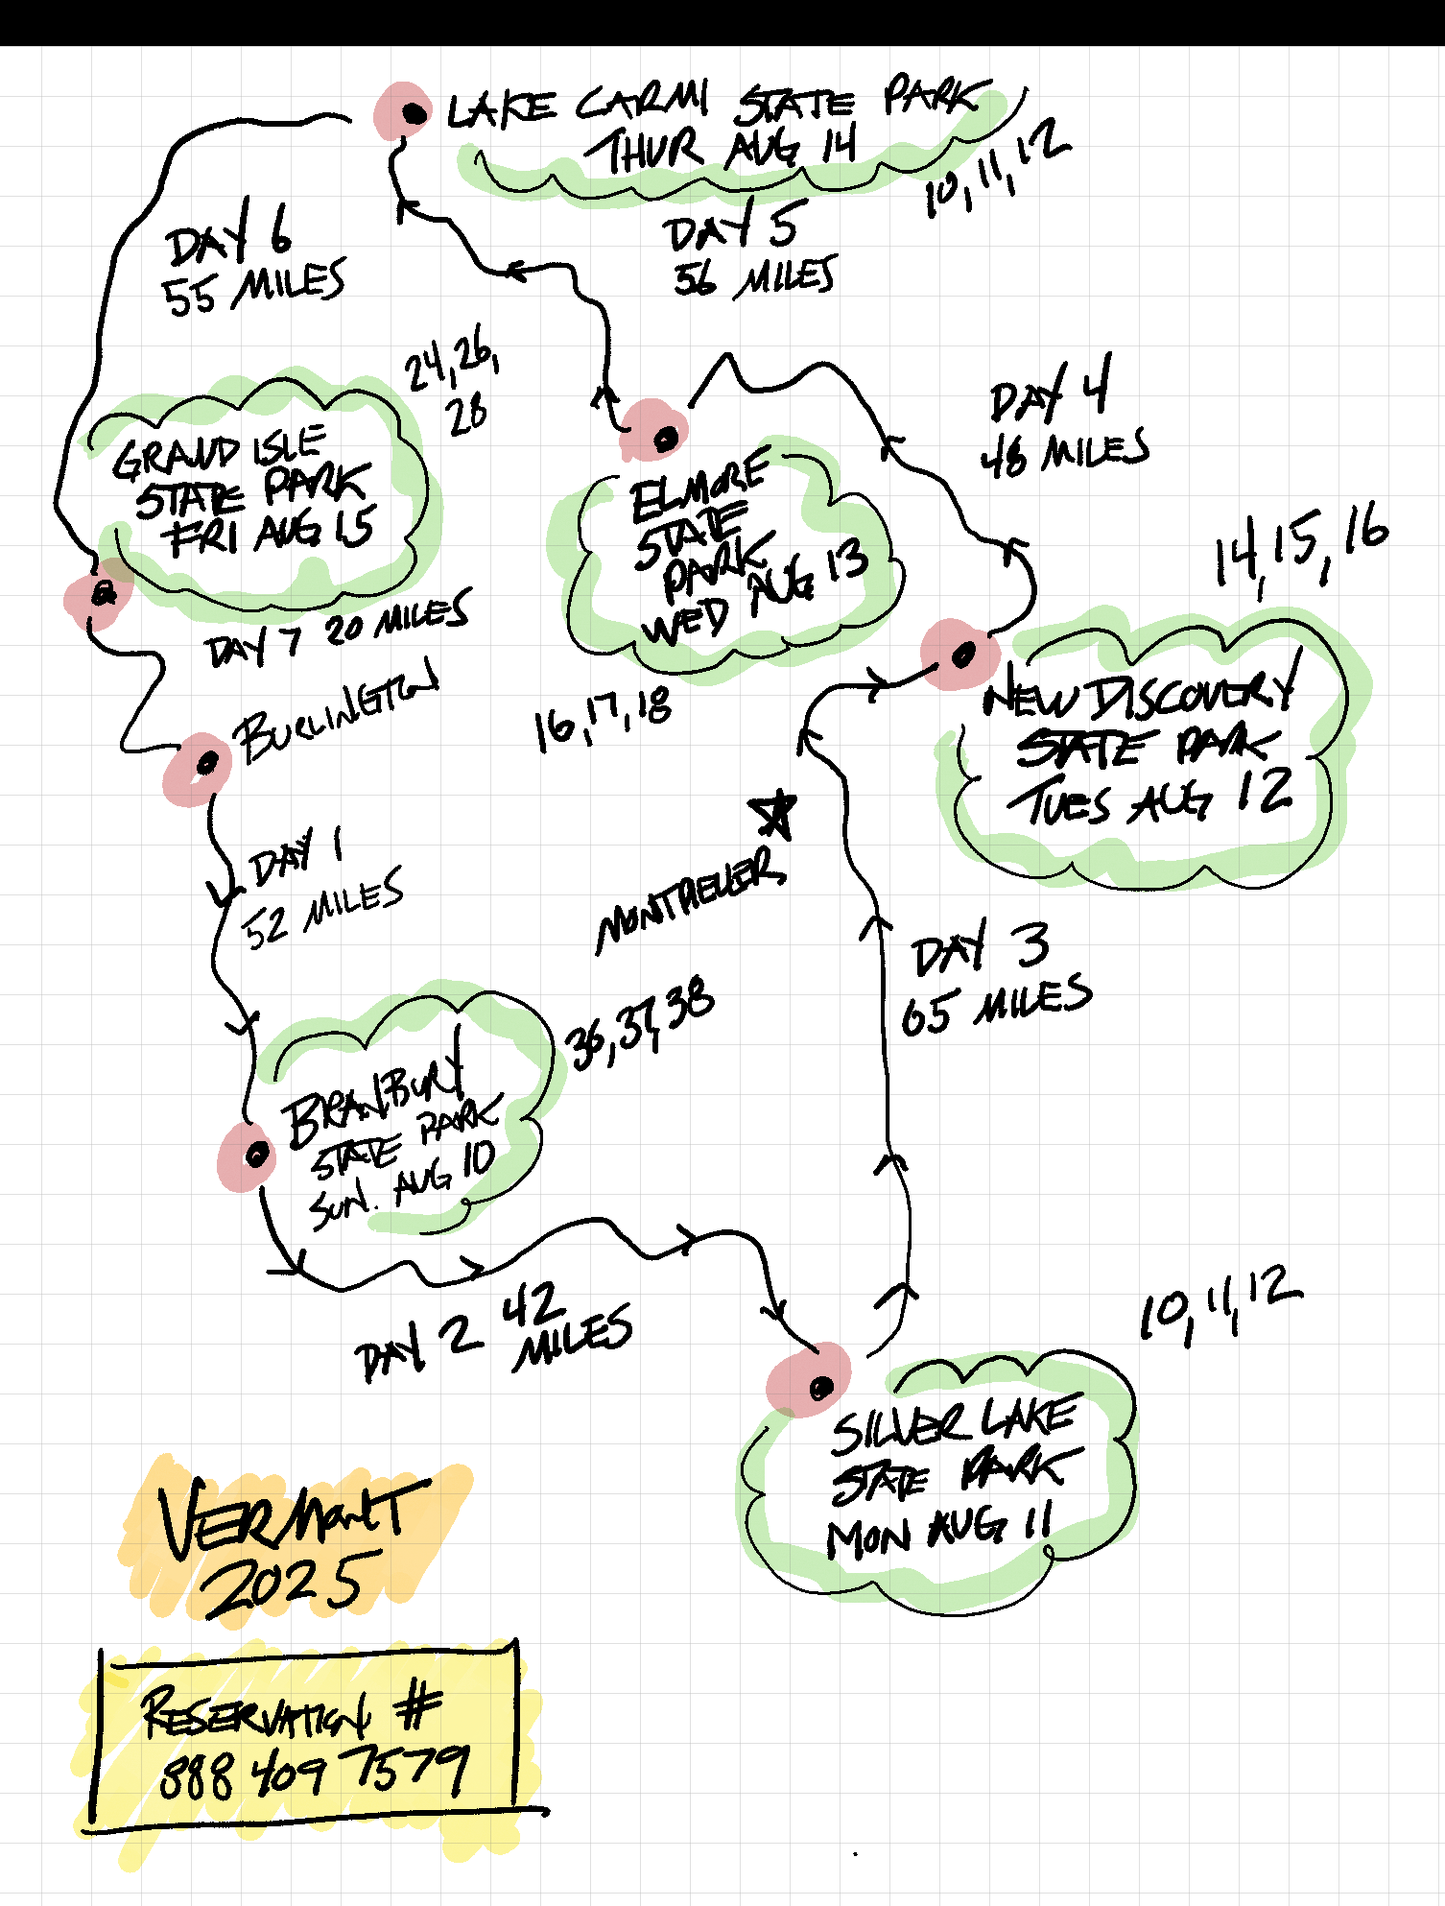 LAKE CARMI STATE PARK
THUR AUG 14
10, 11, 12
DAY 6
55 MILES
DAY 5
56 MILES
24, 26,
28
GRAND ISLE
STATE PARK
FRI AUG 15
DAY 4
48 MILES
ELMORE
STATE
PARK
WED AUG 13
16, 17, 18
14, 15, 16
NEW DISCOVERY
STATE PARK
TUES AUG 12
DAY 7 20 MILES
BURLINGTON
DAY 1
52 MILES
MONTPELIER
DAY 3
65 MILES
36, 37, 38
BRANBURY
STATE PARK
SUN. AUG 10
DAY 2 42
MILES
10, 11, 12
SILVER LAKE
STATE PARK
MON AUG 11
VERMONT
2025
RESERVATION #
888 409 7579